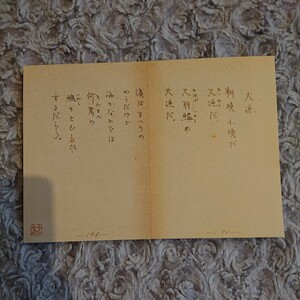 大漁
朝焼小焼だ
大漁だ
大羽鰮の
大漁だ。
濱はまつりの
やうだけど
海のなかでは
何萬の
鰮のとむらひ
するだらう。